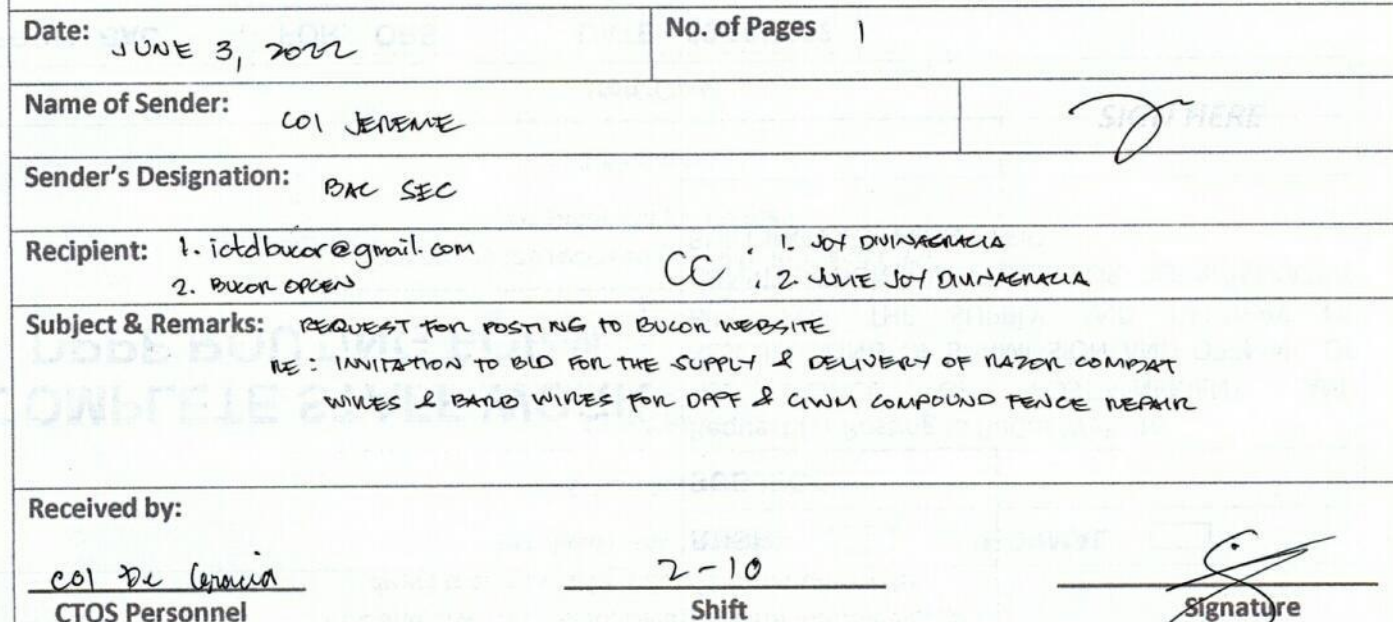 Date: JUNE 3, 2022
No. of Pages 1
Name of Sender: CO1 JEREME
Sender's Designation: BAC SEC
Recipient: 1. ictdbucor@gmail.com
2. BUCOR OPCEN
CC: 1. JOY DIVINAGRACIA
2. JULIE JOY DIVINAGRACIA
Subject & Remarks: REQUEST FOR POSTING TO BUCOR WEBSITE
RE: INVITATION TO BID FOR THE SUPPLY & DELIVERY OF RAZOR COMBAT
WIRES & BARB WIRES FOR DPPF & CIWM COMPOUND FENCE REPAIR
Received by:
CO1 De
2-10
CTOS Personnel
Shift
Signature